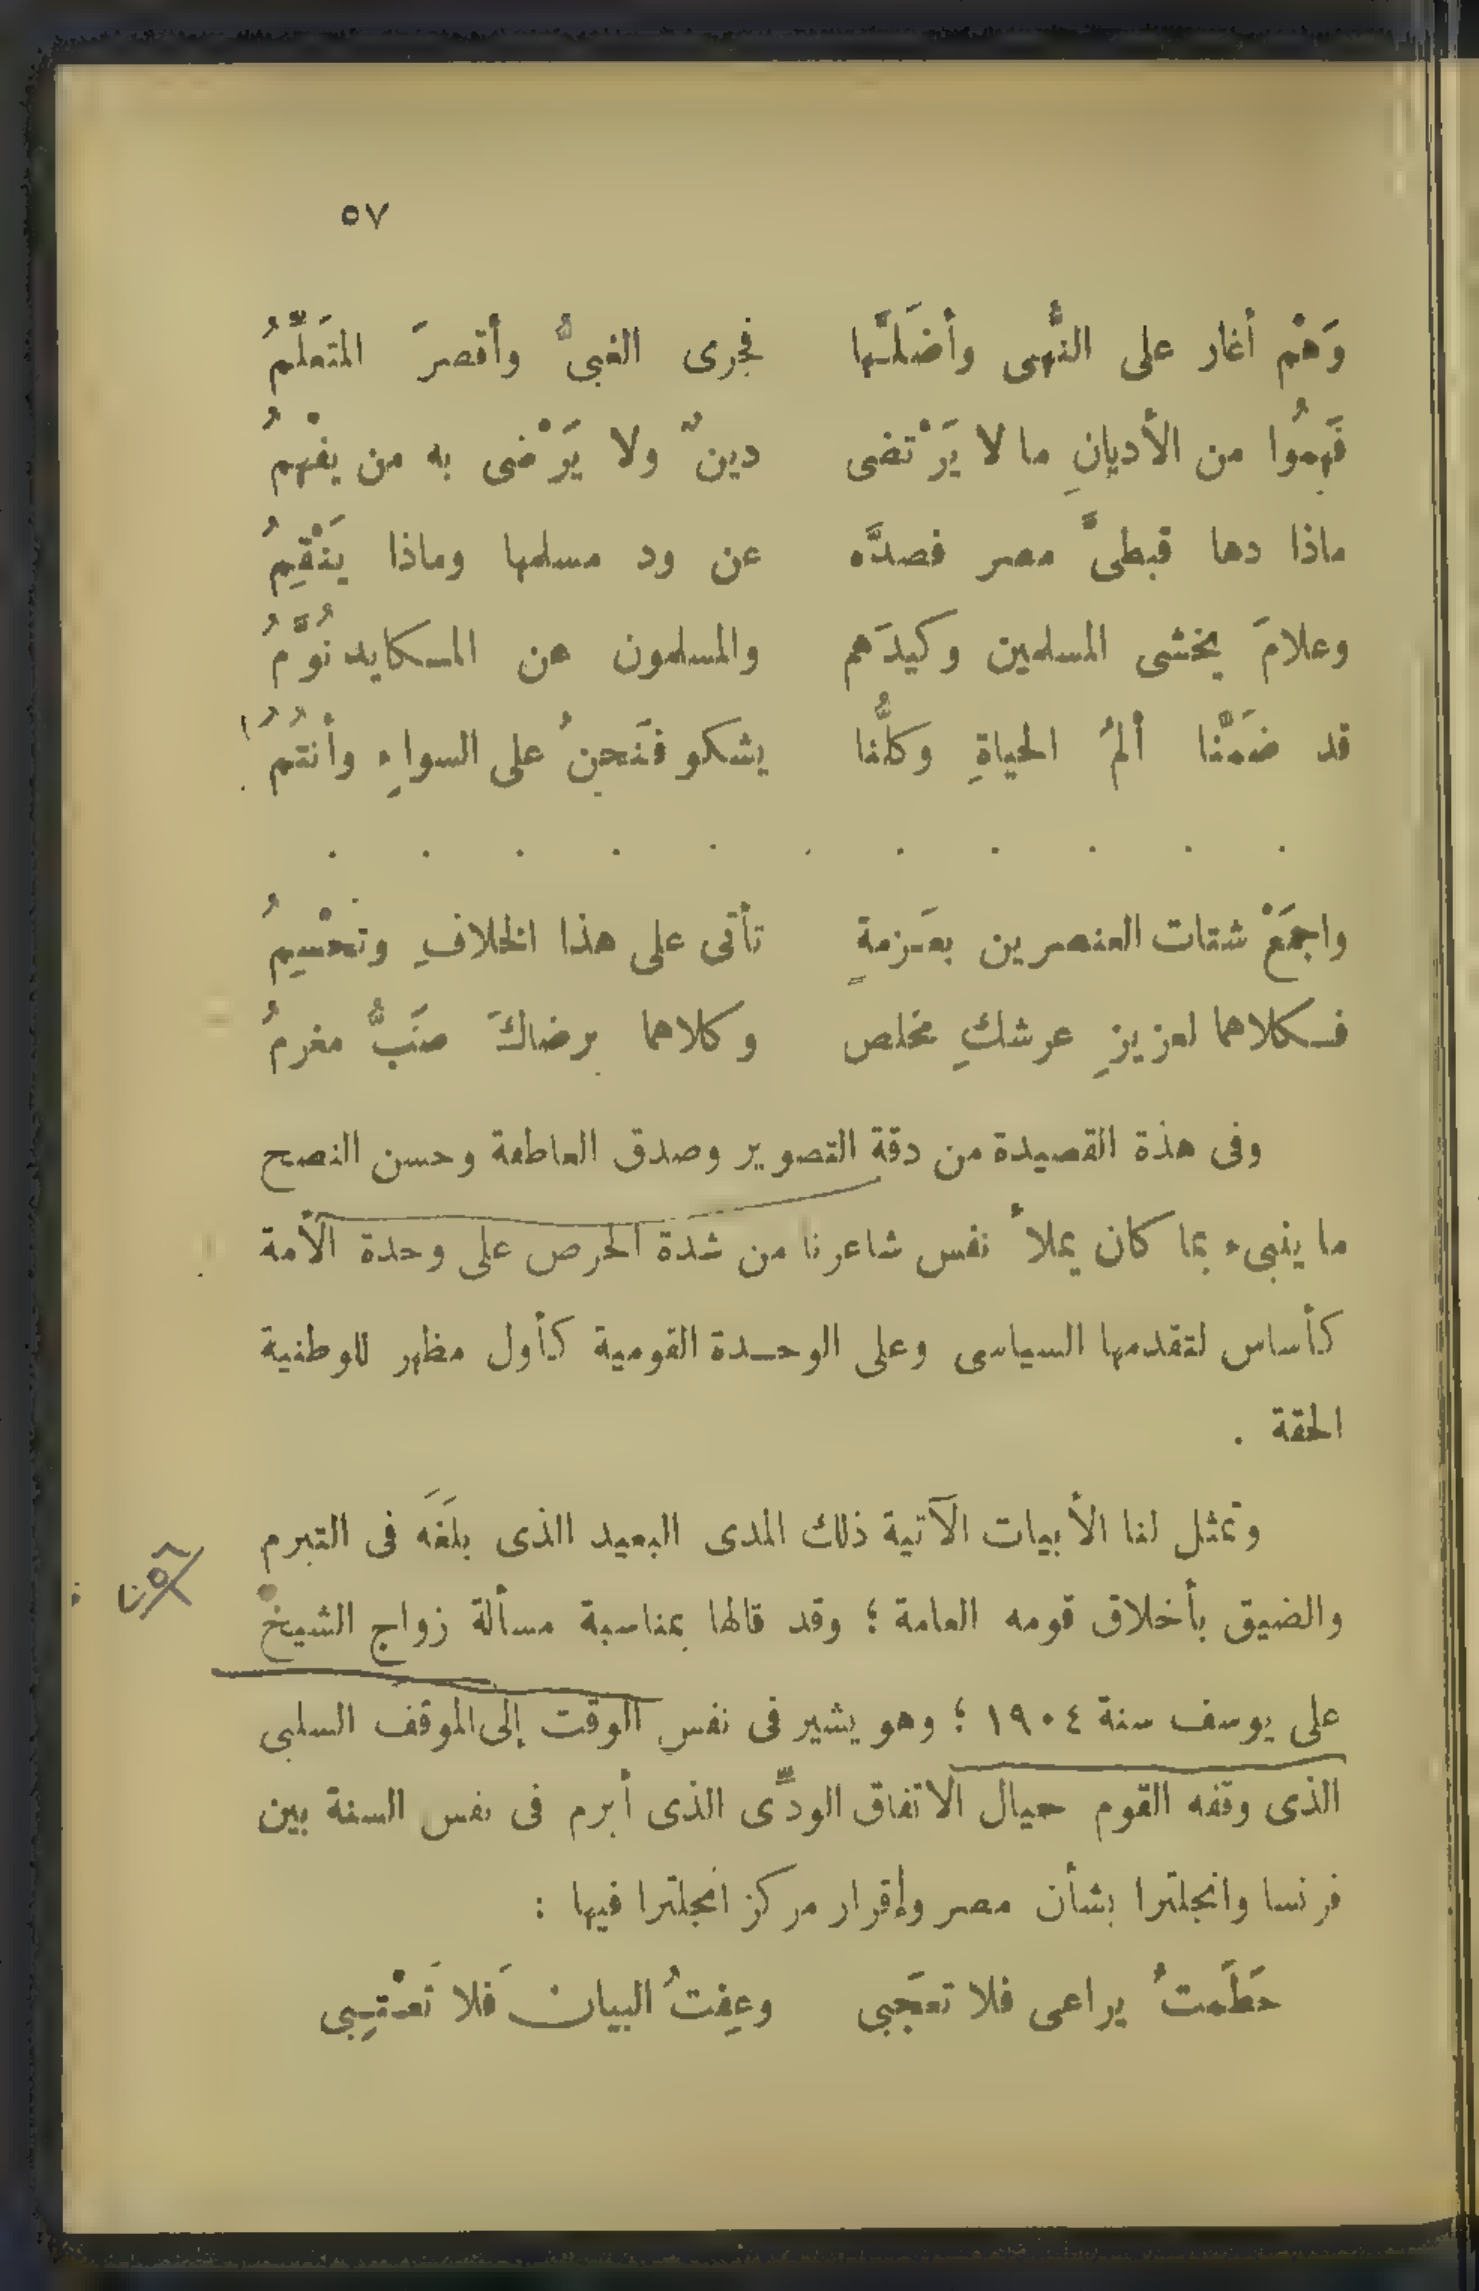 ٥٧
وَهْم أغار على النُّهى وأضَلَّها فجرى الغبىُّ وأقصرَ المتَعلِّمُ
فَهِمُوا من الأديانِ ما لا يَرْتضى دينٌ ولا يَرْضى به من يفْهمُ
ماذا دها قبطىَّ مصر فصدَّه عن ود مسلمها وماذا يَنْقِمُ
وعلامَ يخشى المسلمين وكيدَهم والمسلمون عن المكايد نُوَّمُ
قد ضَمَّنا ألمُ الحياةِ وكلُّنا يشكو فنَحنُ على السواءِ وأنتُمُ
. . . . . . . . . . .
واجمَعْ شتات العنصرين بعَزمةٍ تأتى على هذا الخلافِ وتحْسِمُ
فكلاهما لعزيزِ عرشكِ مخلص وكلاهما برضاكَ صَبٌّ مغرمُ
وفى هذة القصيدة من دقة التصوير وصدق العاطفة وحسن النصح
ما ينبىء بما كان يملأ نفس شاعرنا من شدة الحرص على وحدة الأمة
كأساس لتقدمها السياسى وعلى الوحدة القومية كأول مظهر للوطنية
الحقة .
وتمثل لنا الأبيات الآتية ذلك المدى البعيد الذى بلَغَه فى التبرم
والضيق بأخلاق قومه العامة ؛ وقد قالها بمناسبة مسألة زواج الشيخ
على يوسف سنة ١٩٠٤ ؛ وهو يشير فى نفس الوقت إلى الموقف السلبى
الذى وقفه القوم حيال الاتفاق الودِّى الذى أبرم فى نفس السنة بين
فرنسا وانجلترا بشأن مصر وإقرار مركز انجلترا فيها :
حَطَمتُ يراعى فلا تعجَبى وعِفتُ البيان فَلا تَعْتِبى